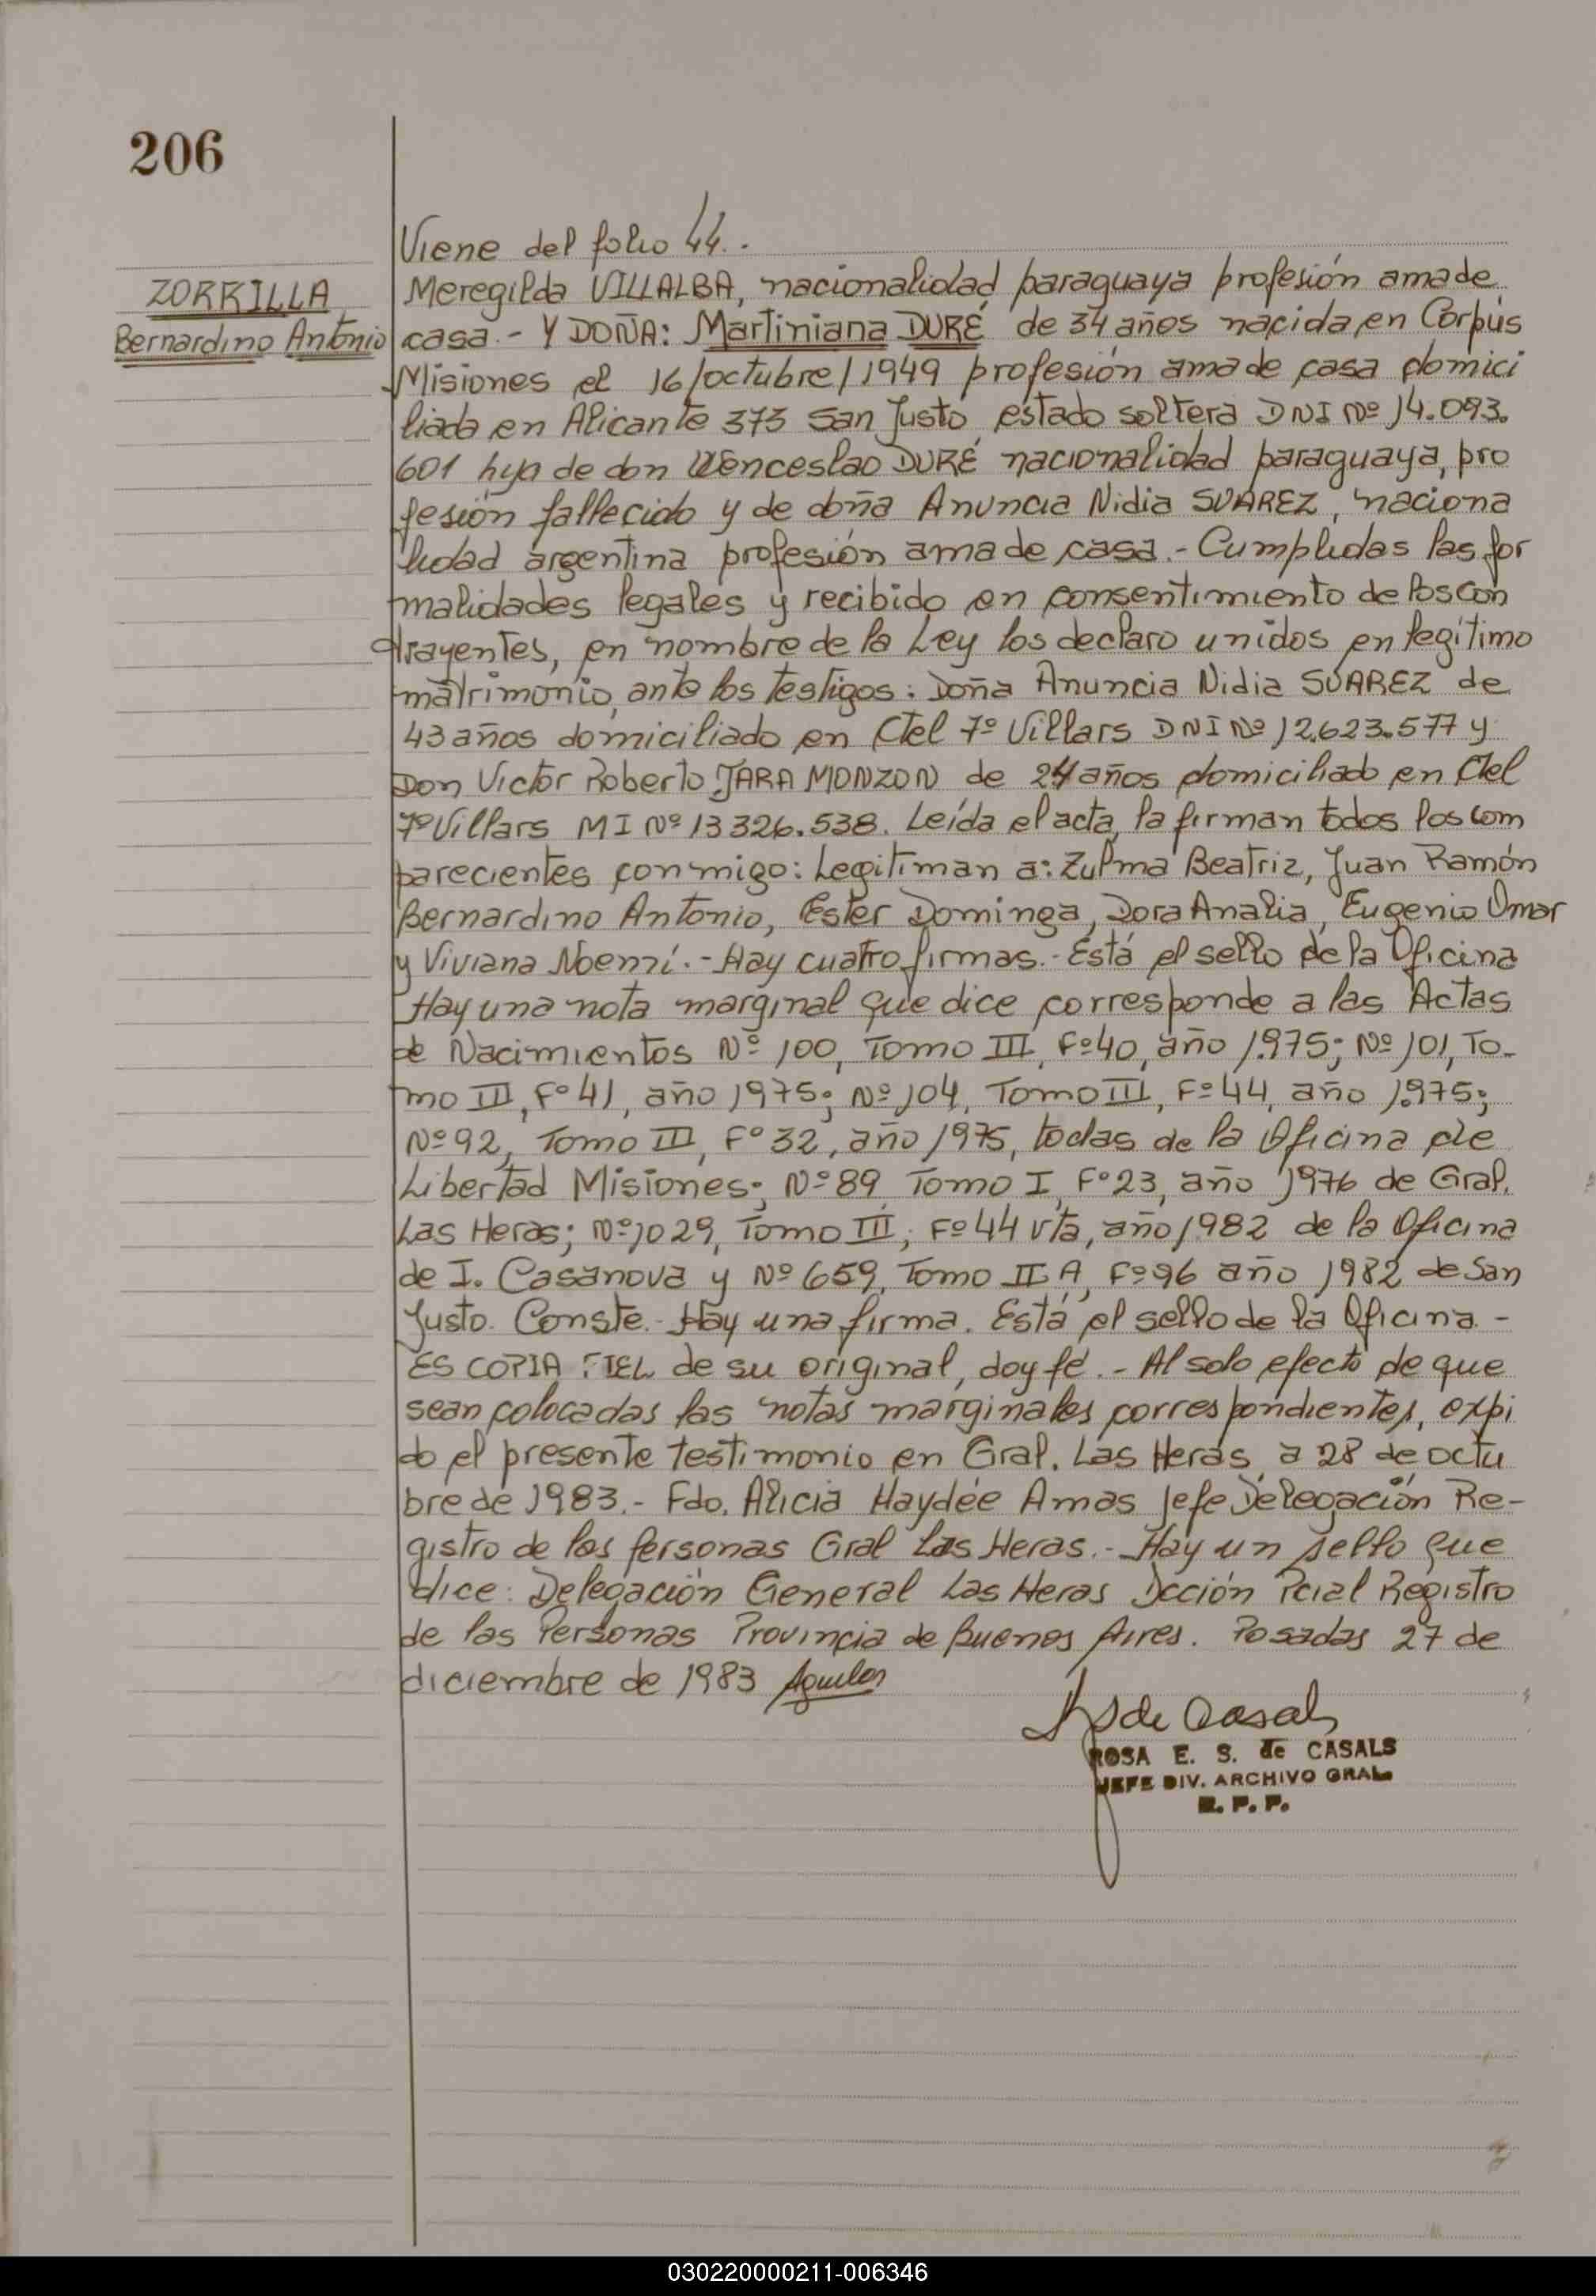 206
Viene del folio 44.-
ZORRILLA
Bernardino Antonio
Meregilda VILLALBA, nacionalidad paraguaya profesión ama de
casa.- Y DOÑA: Martiniana DURÉ de 34 años nacida en Corpus
Misiones el 16/octubre/1949 profesión ama de casa domici
liada en Alicante 373 San Justo, estado soltera DNI Nº 14.093.
601 hija de don Wenceslao DURÉ nacionalidad paraguaya, pro
fesión fallecido y de doña Anuncia Nidia SUAREZ, naciona
lidad argentina profesión ama de casa.- Cumplidas las for
malidades legales y recibido en consentimiento de los con
trayentes, en nombre de la Ley los declaro unidos en legítimo
matrimonio, ante los testigos: Doña Anuncia Nidia SUAREZ de
43 años domiciliado en Ctel 7º Villars DNI Nº 12.623.577 y
Don Victor Roberto JARA MONZON de 24 años domiciliado en Ctel
7º Villars MI Nº 13326.538. Leída el acta, la firman todos los com
parecientes conmigo: Legitiman a: Zulma Beatriz, Juan Ramón
Bernardino Antonio, Ester Dominga, Dora Analia, Eugenio Omar
y Viviana Noemí.- Hay cuatro firmas.- Está el sello de la Oficina
Hay una nota marginal que dice corresponde a las Actas
de Nacimientos Nº 100, Tomo III, Fº 40, año 1975; Nº 101, To-
mo III, Fº 41, año 1975; Nº 104, Tomo III, Fº 44, año 1975;
Nº 92, Tomo III, Fº 32, año 1975, todas de la Oficina de
Libertad Misiones; Nº 89 Tomo I, Fº 23, año 1976 de Gral.
Las Heras; Nº 1029, Tomo III, Fº 44 vta, año 1982 de la Oficina
de I. Casanova y Nº 659, Tomo II A, Fº 96 año 1982 de San
Justo. Conste.- Hay una firma. Está el sello de la Oficina.-
ES COPIA FIEL de su original, doy fé.- Al solo efecto de que
sean colocadas las notas marginales correspondientes, expi
do el presente testimonio en Gral. Las Heras, a 28 de octu
bre de 1983.- Fdo. Alicia Haydée Amas Jefe Delegación Re-
gistro de las Personas Gral Las Heras.- Hay un sello que
dice: Delegación General Las Heras Dcción Pcial Registro
de las Personas Provincia de Buenos Aires. Posadas 27 de
diciembre de 1983
de Casals
ROSA E. S. de CASALS
JEFE DIV. ARCHIVO GRAL
R. P. P.
030220000211-006346